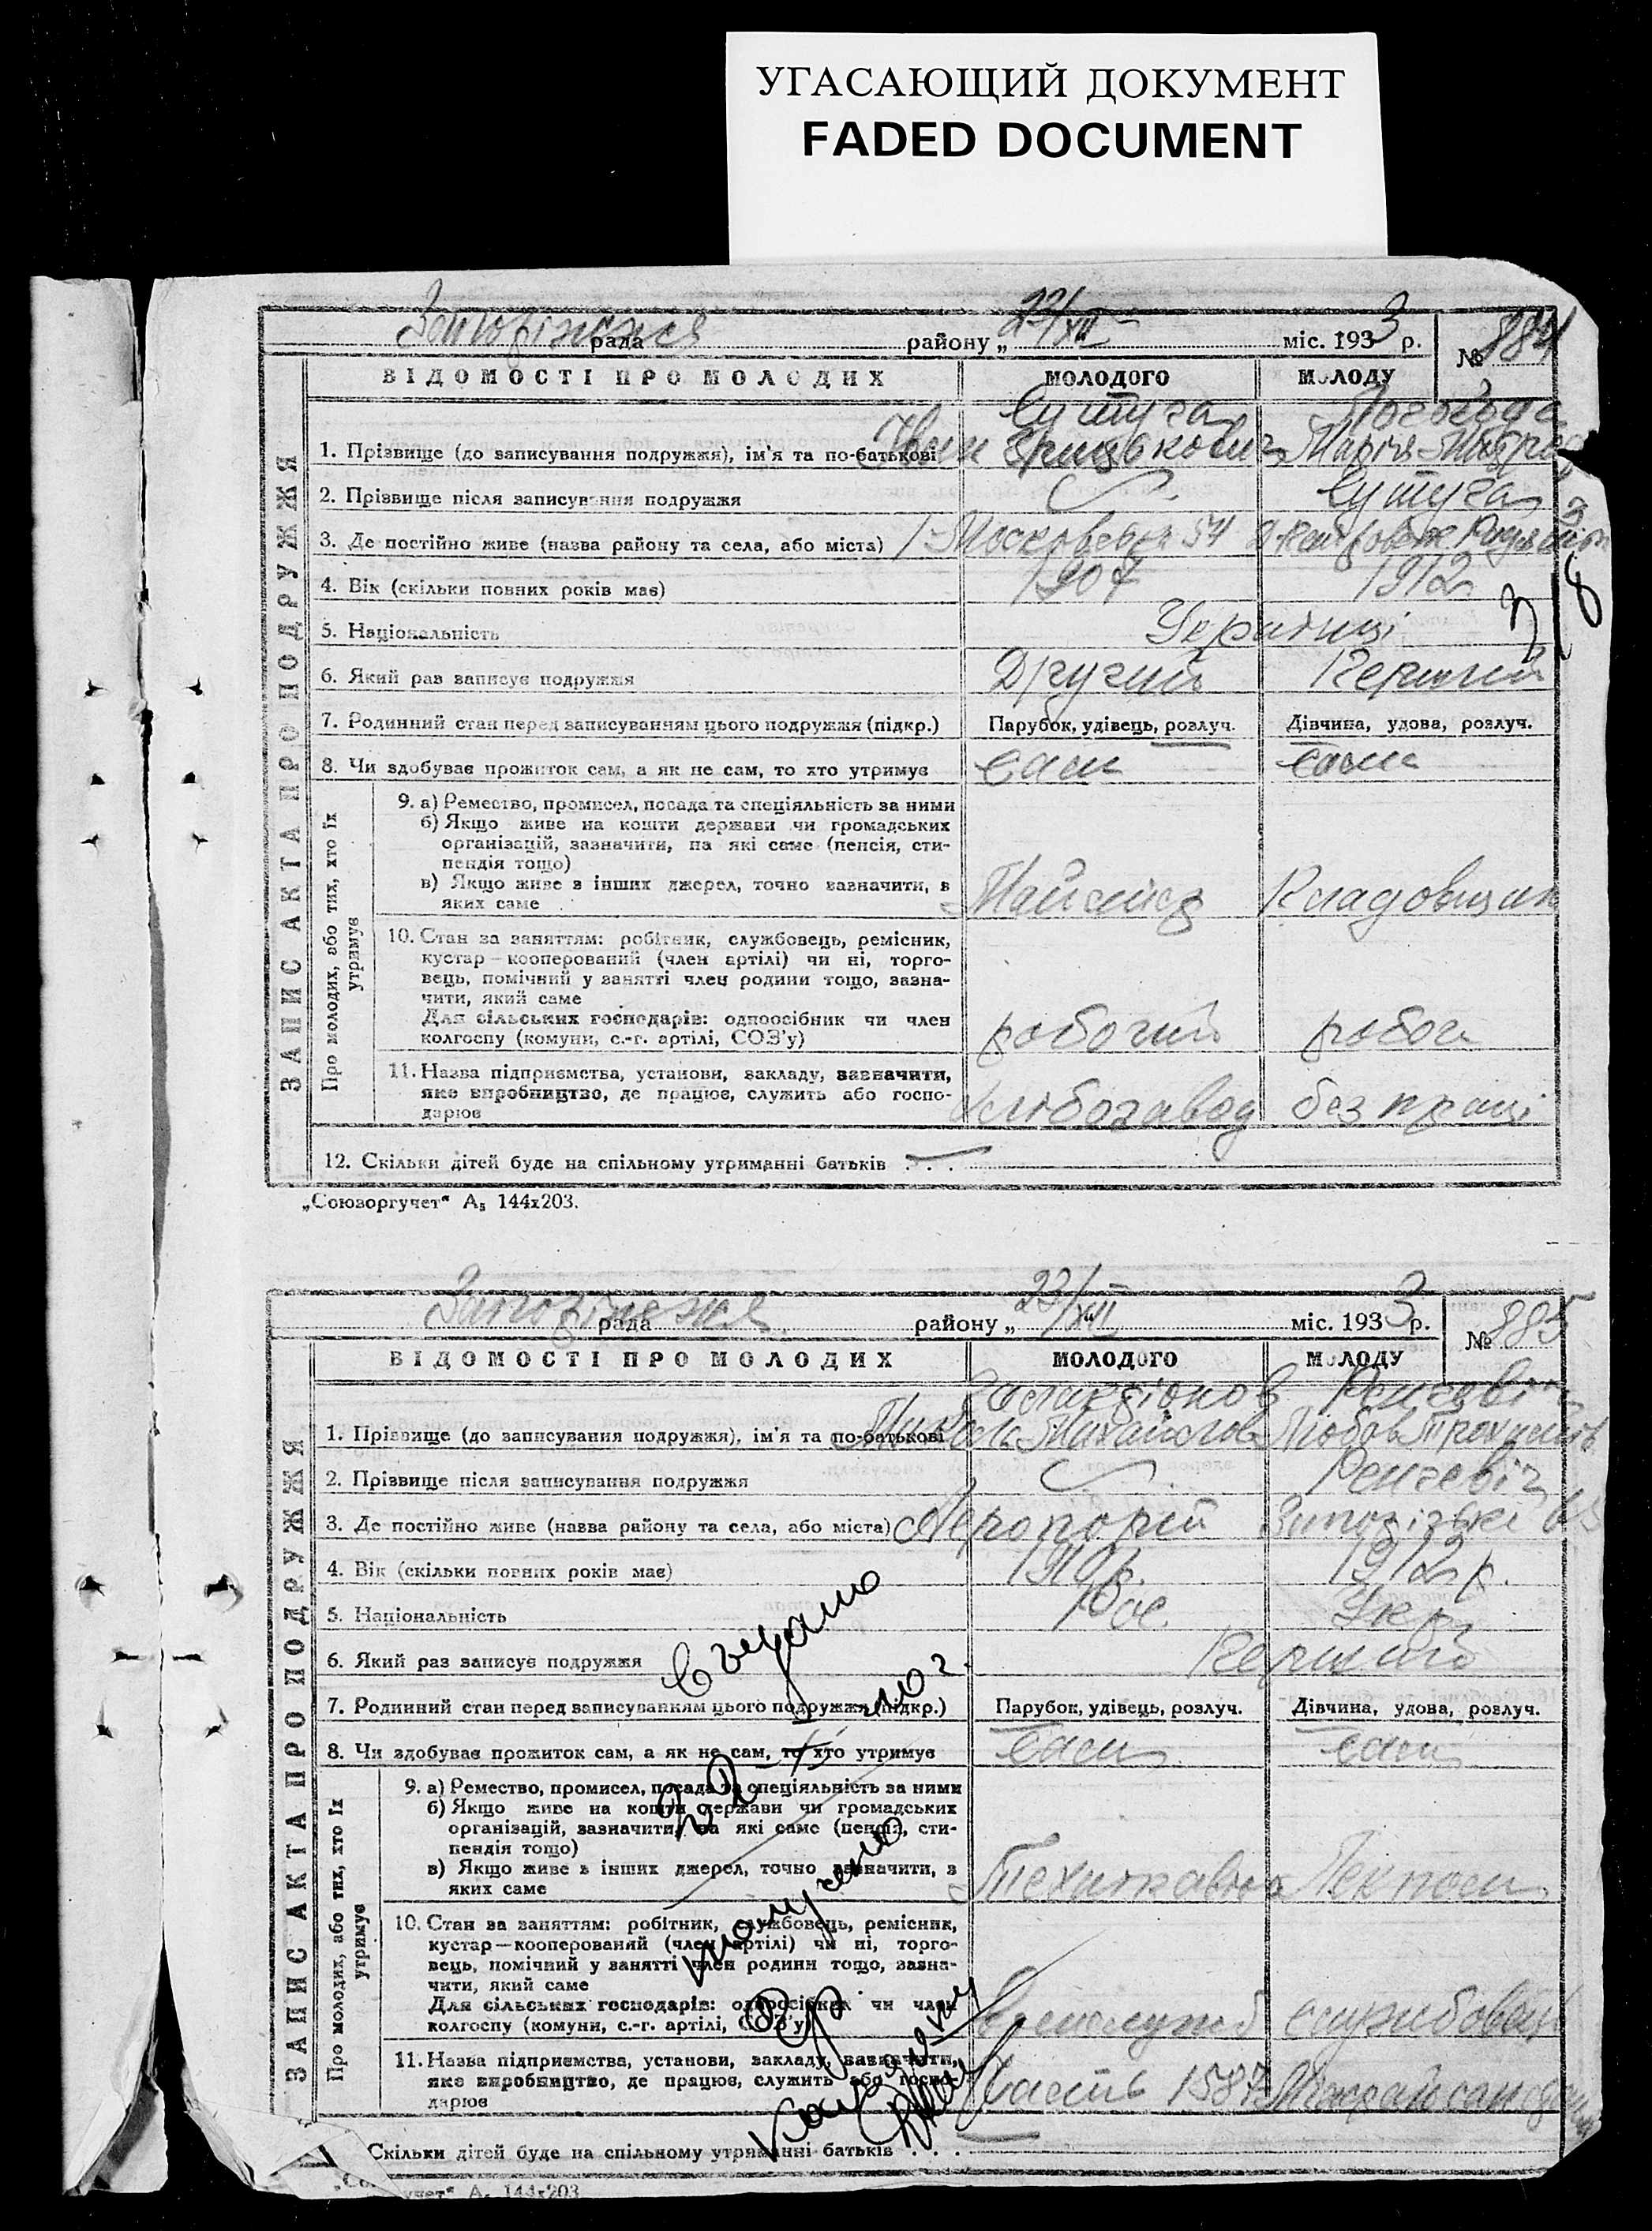 УГАСАЮЩИЙ ДОКУМЕНТ
FADED DOCUMENT
рада району „ 23/XII міс. 1933 р. № 884
ВІДОМОСТІ ПРО МОЛОДИХ МОЛОДОГО МОЛОДУ
ЗАПИС АКТА ПРО ПОДРУЖЖЯ
Сутуга
1. Прізвище (до записування подружжя), ім'я та по-батькові Іван Грицькович Марія
2. Прізвище після записування подружжя Сутуга
3. Де постійно живе (назва району та села, або міста) Московська 54
4. Вік (скільки повних років має) 1907 1912
5. Національність Українці
6. Який раз записує подружжя Другий Перший
7. Родинний стан перед записуванням цього подружжя (підкр.) Парубок, удівець, розлуч. Дівчина, удова, розлуч.
8. Чи здобуває прожиток сам, а як не сам, то хто утримує сам сама
Про молодих, або тих, хто їх утримує
9. а) Ремество, промисел, посада та спеціяльність за ними
б) Якщо живе на кошти держави чи громадських
організацій, зазначити, на які саме (пенсія, сти-
пендія тощо)
в) Якщо живе з інших джерел, точно зазначити, з
яких саме Кладовщик
10. Стан за заняттям: робітник, службовець, ремісник,
кустар—кооперований (член артілі) чи ні, торго-
вець, помічний у занятті член родини тощо, зазна-
чити, який саме
Для сільських господарів: одноосібник чи член
колгоспу (комуни, с.-г. артілі, СОЗ'у) робочий робоч
11. Назва підприємства, установи, закладу, зазначити,
яке виробництво, де працює, служить або госпо-
дарює хлібозавод без праці
12. Скільки дітей буде на спільному утриманні батьків . . .
„Союзоргучет" А₅ 144х203.
рада району „ 23/XII міс. 1933 р. № 885
ВІДОМОСТІ ПРО МОЛОДИХ МОЛОДОГО МОЛОДУ
ЗАПИС АКТА ПРО ПОДРУЖЖЯ
Ренгевіч
1. Прізвище (до записування подружжя), ім'я та по-батькові Микола Михайлов Любов
2. Прізвище після записування подружжя Ренгевіч
3. Де постійно живе (назва району та села, або міста) Аеропорт
4. Вік (скільки повних років має) 1910 р. 1912 р.
5. Національність Рос. Укр.
6. Який раз записує подружжя Перший
7. Родинний стан перед записуванням цього подружжя (підкр.) Парубок, удівець, розлуч. Дівчина, удова, розлуч.
8. Чи здобуває прожиток сам, а як не сам, то хто утримує сам сам
Про молодих, або тих, хто їх утримує
9. а) Ремество, промисел, посада та спеціяльність за ними
б) Якщо живе на кошти держави чи громадських
організацій, зазначити, на які саме (пенсія, сти-
пендія тощо)
в) Якщо живе з інших джерел, точно зазначити, з
яких саме
10. Стан за заняттям: робітник, службовець, ремісник,
кустар—кооперований (член артілі) чи ні, торго-
вець, помічний у занятті член родини тощо, зазна-
чити, який саме
Для сільських господарів: одноосібник чи член
колгоспу (комуни, с.-г. артілі, СОЗ'у) службовець
11. Назва підприємства, установи, закладу, зазначити,
яке виробництво, де працює, служить або госпо-
дарює Часть 1587
Скільки дітей буде на спільному утриманні батьків . . .
учет" А₅ 144х203